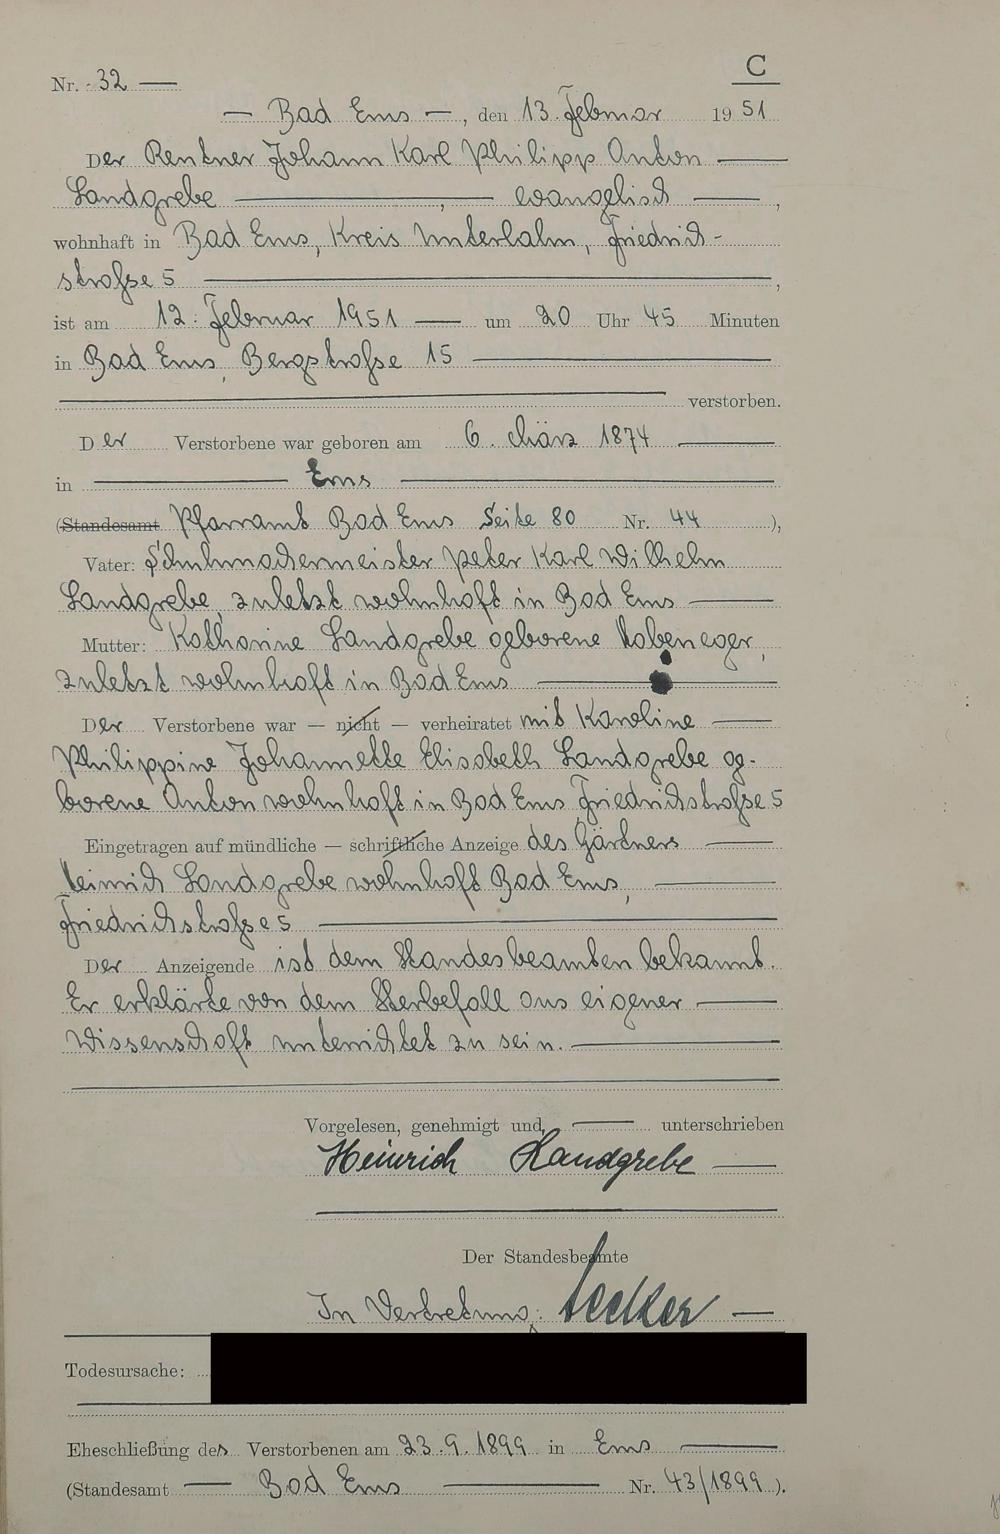 C
Nr. 32 —
— Bad Ems —, den 13. Februar 1951
Der Rentner Johann Karl Philipp Anton —
Landgrebe —, — evangelisch —,
wohnhaft in Bad Ems, Kreis Unterlahn, Friedrich-
straße 5 —,
ist am 12. Februar 1951 — um 20 Uhr 45 Minuten
in Bad Ems, Bergstraße 15 —
— verstorben.
Der Verstorbene war geboren am 6. März 1874 —
in — Ems —
(Standesamt Pfarramt Bad Ems Seite 80 Nr. 44 ),
Vater: Schuhmachermeister Peter Karl Wilhelm
Landgrebe, zuletzt wohnhaft in Bad Ems —
Mutter: Katharine Landgrebe geborene
zuletzt wohnhaft in Bad Ems —
Der Verstorbene war — nicht — verheiratet mit Karoline —
Philippine Johannette Elisabeth Landgrebe ge-
borene Anton wohnhaft in Bad Ems Friedrichstraße 5
Eingetragen auf mündliche — schriftliche Anzeige des Gärtners —
Heinrich Landgrebe wohnhaft Bad Ems, —
Friedrichstraße 5 —
Der Anzeigende ist dem Standesbeamten bekannt.
Er erklärte von dem Sterbefall aus eigener —
Wissenschaft unterrichtet zu sein. —
Vorgelesen, genehmigt und — unterschrieben
Heinrich Landgrebe —
Der Standesbeamte
In Vertretung: —
Todesursache:
Eheschließung des Verstorbenen am 23.9.1899 in Ems —
(Standesamt — Bad Ems — Nr. 43/1899 ).